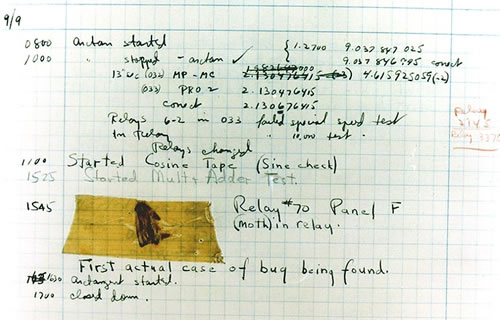 9/9
0800 antan started
1000 " stopped - antan ✓ { 1.2700 9.037 847 025
9.037 846 995 correct
13"uc (032) MP-MC 2.130476415 4.615925059(-2)
(033) PRO 2 2.130476415
correct 2.130676415
Relays 6-2 in 033 failed special speed test
in relay " 10,000 test.
Relay
2145
Relay 3370
Relays changed
1100 Started Cosine Tape (Sine check)
1525 Started Mult+Adder Test.
1545 Relay #70 Panel F
(moth) in relay.
First actual case of bug being found.
1630 antangent started.
1700 closed down.